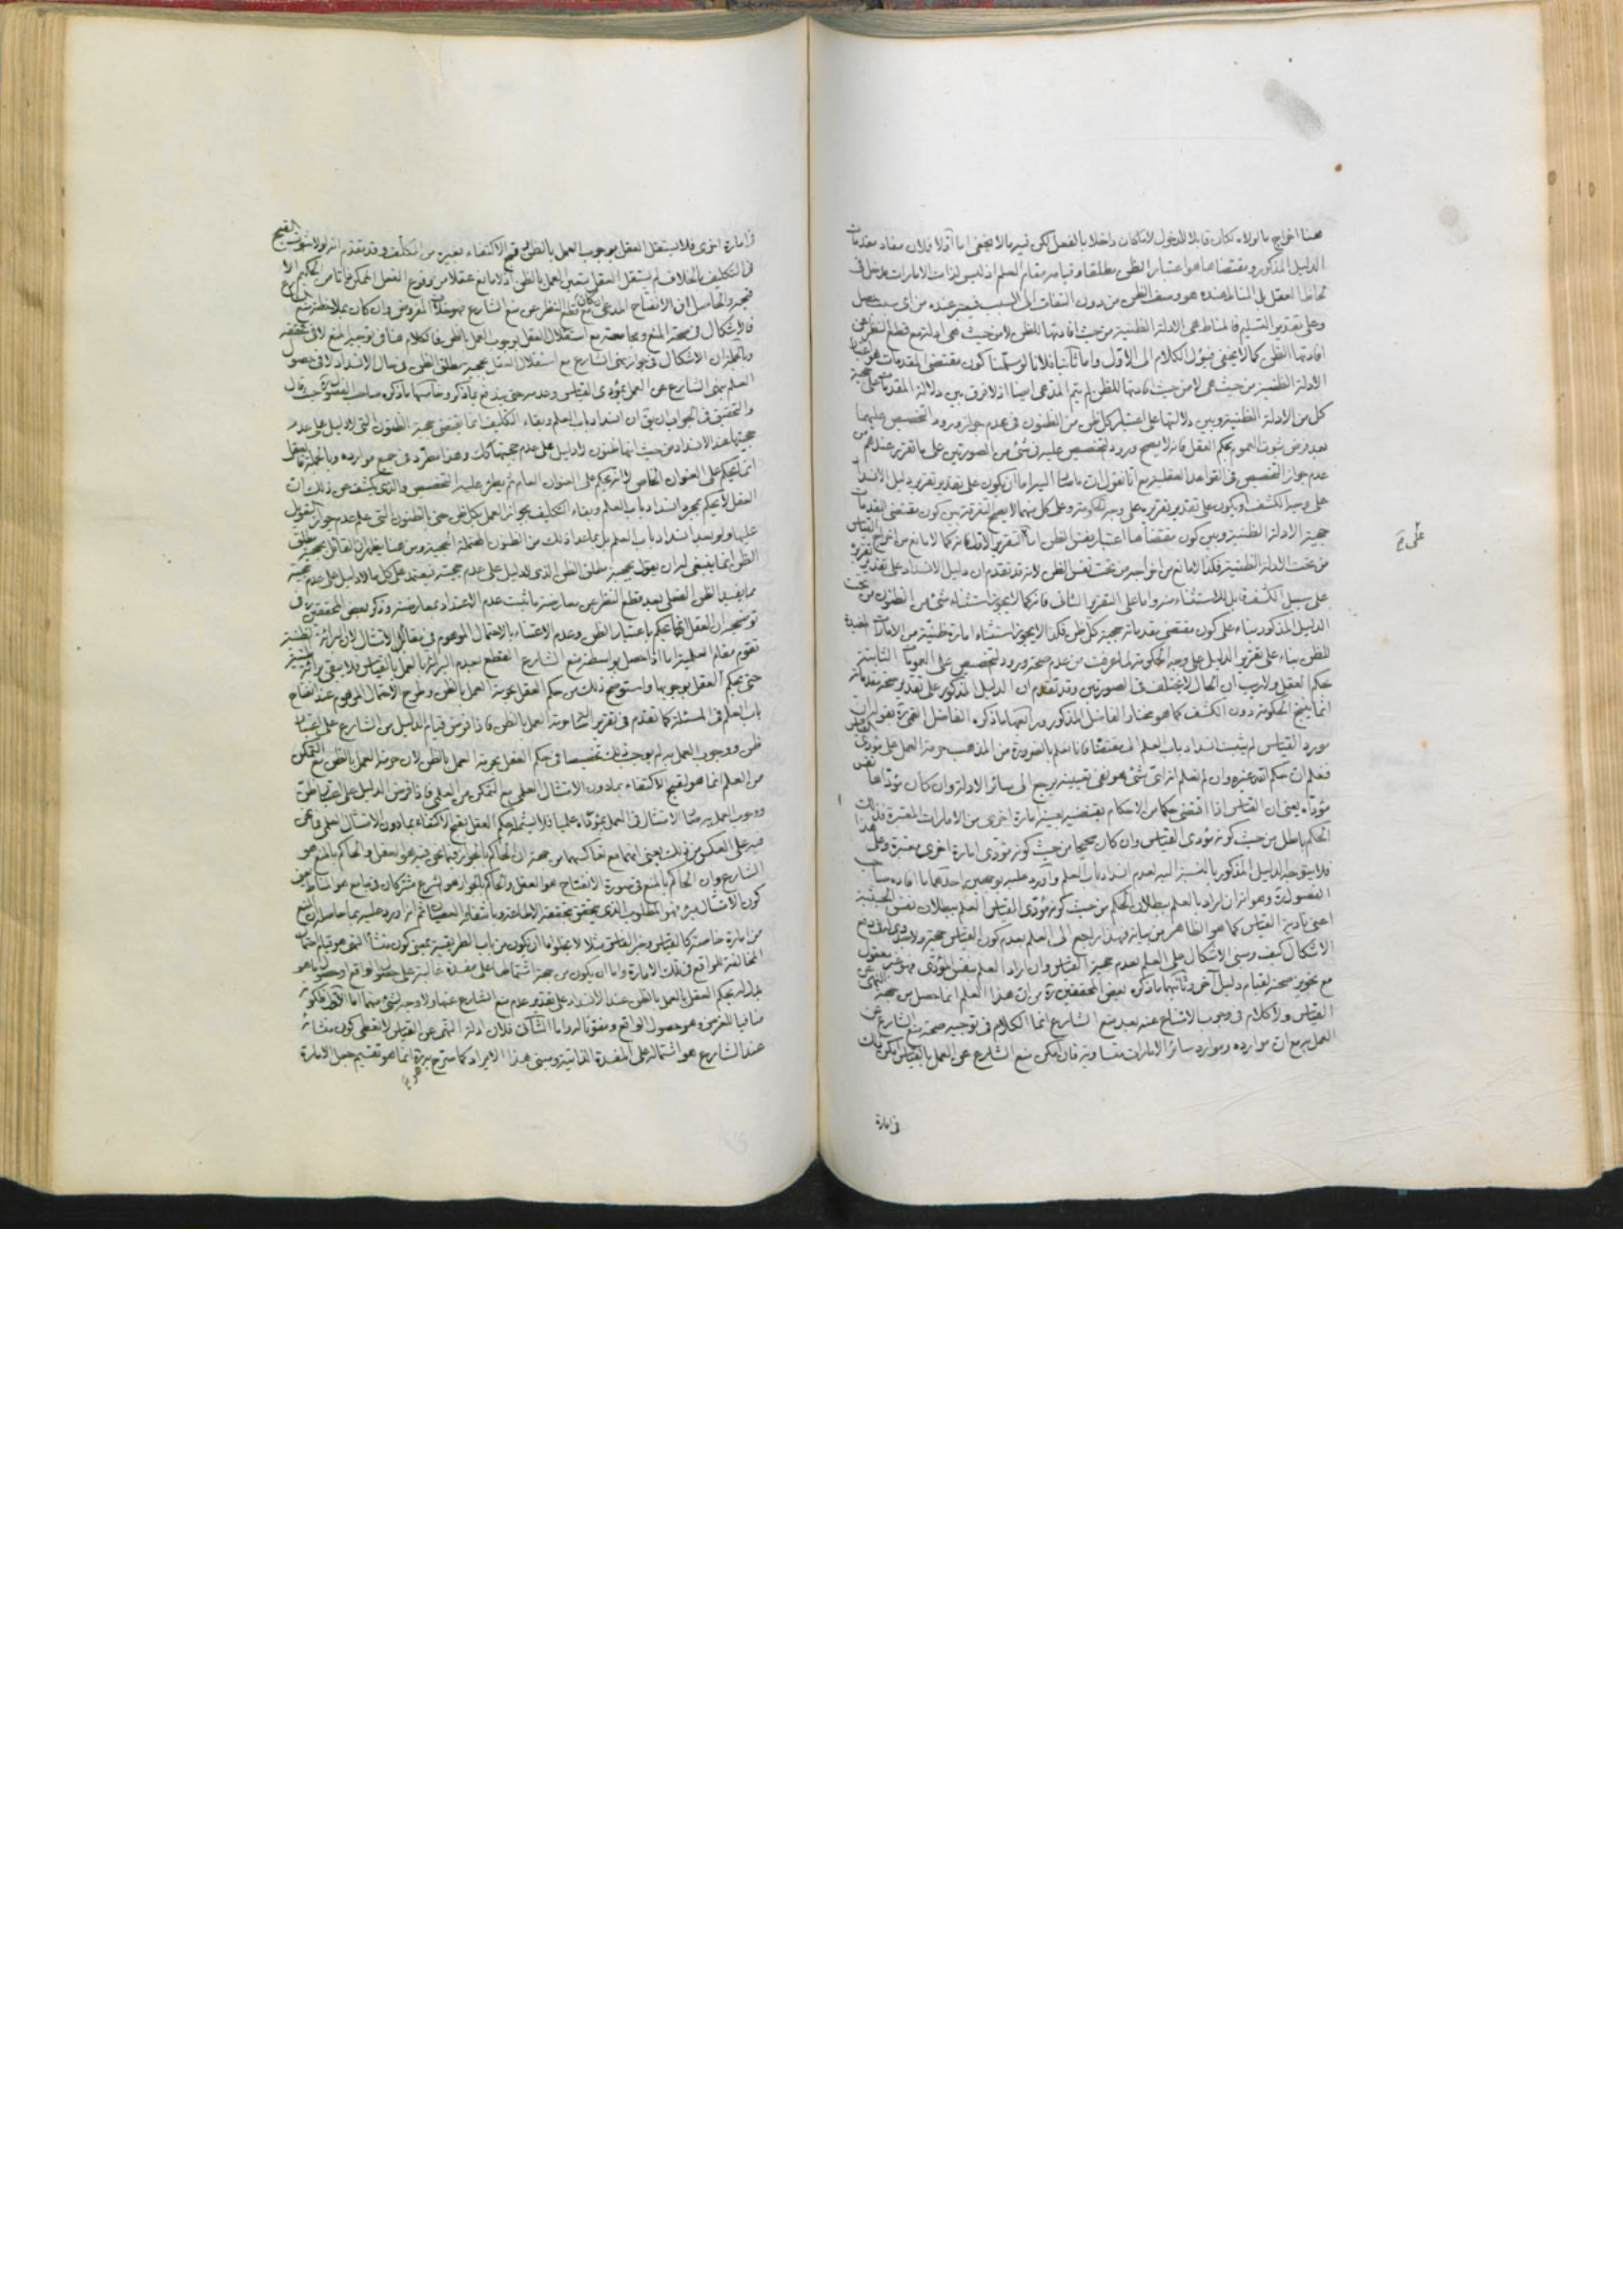 هنا اخراج ما لولاه لكان قابلا للدخول لا ما كان داخلا بالفعل لكن فيه ما لا يخفى اما اولا فلان مفاد مقدمات
الدليل المذكور ومقتضاها هو اعتبار الظن مطلقا وقيامه مقام العلم اذ ليس لذات الامارات مدخل في
لحاظ العقل بل المناط عنده هو وصف الظن من دون التفات الى السبب فيعتبر عنده من اى سبب حصل
وعلى تقدير التسليم فالمناط هى الادلة الظنية من حيث افادتها للظن لا من حيث هى ادلة مع قطع النظر عن
افادتها الظن كما لا يخفى فيؤل الكلام الى الاول واما ثانيا فلانا لو سلمنا كون مقتضى المقدمات هو اعتبار
الادلة الظنية من حيث هى لا من حيث افادتها للظن لم يتم المدعى ايضا اذ لا فرق بين دلالة المقدمات على حجية
كل من الادلة الظنية وبين دلالتها على اعتبار كل ظن من الظنون فى عدم جواز ورود التخصيص عليهما
بعد فرض ثبوت العموم بحكم العقل فانه لا يصح ورود التخصيص عليه فى شئ من الصورتين على ما تقرر عندهم من
عدم جواز التخصيص فى القواعد العقلية مع انا نقول ان اما ان يكون على تقدير تقرير دليل الانسداد
على وجه الكشف او يكون على تقدير تقريره على وجه الحكومة وعلى كل منهما لا يصح التفرقة بين كون مقتضى المقدمات
حجية الادلة الظنية وبين كون مقتضاها اعتبار نفس الظن اما التقرير الاول فانه كما لا مانع من اخراج القياس
من تحت الادلة الظنية فكذا لا مانع من اخراجه من تحت نفس الظن لانه قد تقدم ان دليل الانسداد على تقدير تقريره
على سبيل الكشف قابل للاستثناء منه واما على التقرير الثانى فانه كما لا يجوز استثناء شئ من الظنون من تحت
الدليل المذكور بناء على كون مقتضى مقدماته حجية كل ظن فكذا لا يجوز استثناء امارة ظنية من الامارات المفيدة
للظن بناء على تقرير الدليل على وجه الحكومة لما عرفت من عدم صحة ورود التخصيص على العمومات الثابتة
بحكم العقل ولا ريب ان الحال لا يختلف فى الصورتين وقد تقدم ان الدليل المذكور على تقدير صحة مقدماته
انما ينتج الحكومة دون الكشف كما هو مختار الفاضل المذكور ورابعها ما ذكره الفاضل القمى ره بقوله ان
مورد القياس لم يثبت انسداد باب العلم الى مقتضاه فانا نعلم بالضرورة من المذهب حرمة العمل على مؤدى القياس
فنعلم ان حكم الله غيره وان لم نعلم انه اى شئ هو ففى تعيينه يرجع الى سائر الادلة وان كان مؤداها نفس
مؤداه يعنى ان القياس اذا اقتضى حكما من الاحكام يقتضيه بعينه امارة اخرى من الامارات المعتبرة فذلك
الحكم باطل من حيث كونه مؤدى القياس وان كان صحيحا من حيث كونه مؤدى امارة اخرى معتبرة وعلى هذا
فلا يتوجه الدليل المذكور بالنسبة اليه لعدم انسداد باب العلم واورد عليه بوجهين احدهما ما افاده صاحب
الفصول ره وهو انه ان اراد بالعلم ببطلان الحكم من حيث كونه مؤدى القياس العلم ببطلان نفس الحيثية
اعنى تأدية القياس كما هو الظاهر من بيانه فهذا راجع الى العلم بعدم كون القياس حجة ولا جدوى له فى دفع
الاشكال كيف ومبنى الاشكال على العلم بعدم حجية القياس وان اراد العلم بنفس المؤدى فهو غير معقول
مع تجويز صحته لقيام دليل آخر وثانيهما ما ذكره بعض المحققين ره من ان هذا العلم انما حصل من جهة النهى عن
القياس ولا كلام فى وجوب الامتناع عنه بعد منع الشارع انما الكلام فى توجيه صحة منع الشارع عن
العمل به مع ان موارده وموارد سائر الامارات متساوية فان امكن منع الشارع عن العمل بالقياس امكن ذلك
فى امارة
فى امارة اخرى فلا يستقل العقل بوجوب العمل بالظن وقبح الاكتفاء بغيره من المكلف وقد تقدم انه لولا ثبوت القبح
فى التكليف بالخلاف لم يستقل العقل بتعين العمل بالظن اذ لا مانع عقلا من وقوع الفعل الممكن ذاتا من الحكيم الا
قبحه والحاصل ان الانفتاح المدعى ان كان مع قطع النظر عن منع الشارع فهو خلاف المفروض وان كان بملاحظة منع الشارع
فالاشكال فى صحة المنع ومجامعته مع استقلال العقل بوجوب العمل بالظن فالكلام هنا فى توجيه المنع لا فى تحققه
وبالجملة ان الاشكال فى جواز نهى الشارع مع استقلال العقل بحجية مطلق الظن فى حال الانسداد لا فى حصول
العلم بنهى الشارع عن العمل بمؤدى القياس وعدمه حتى يندفع بما ذكر وخامسها ما ذكره صاحب الفصول ره حيث قال
والتحقيق فى الجواب ان يق ان انسداد باب العلم وبقاء التكليف انما يقتضى حجية الظنون التى لا دليل على عدم
حجيتها عند الانسداد من حيث انها ظنون لا دليل على عدم حجيتها كك وهذا مطرد فى جميع موارده وبالجملة فالعقل
انما يحكم على العنوان الخاص لا انه يحكم على العنوان العام ثم يطرء عليه التخصيص والذى يكشف عن ذلك ان
العقل لا يحكم بمجرد انسداد باب العلم وبقاء التكليف بجواز العمل بكل ظن حتى بالظنون التى علم عدم جواز التعويل
عليها ولو بعد انسداد باب العلم بل بما عدا ذلك من الظنون المحتملة الحجية ومن هنا يظهر ان القائل بحجية مطلق
الظن انما ينبغى له ان يقول بحجية مطلق الظن الذى لا دليل على عدم حجيته فيعتمد على كل ما لا دليل على عدم حجيته
مما يفيد الظن الفعلى بعد قطع النظر عن معارضة ما ثبت عدم الاعتداد بمعارضته وذكر بعض المحققين ره فى
توضيحه ان العقل انما يحكم باعتبار الظن وعدم الاعتناء بالاحتمال الموهوم فى مقام الامتثال لان البرائة الظنية
تقوم مقام العلمية اما اذا حصل بواسطة منع الشارع القطع بعدم البرائة بالعمل بالقياس فلا يبقى برائة ظنية
حتى يحكم العقل بوجوبها واستوضح ذلك من حكم العقل بحرمة العمل بالظن وطرح الاحتمال الموهوم عند انفتاح
باب العلم فى المسئلة كما تقدم فى تقرير اصالة حرمة العمل بالظن فاذا فرض قيام الدليل من الشارع على اعتبار
ظن ووجوب العمل به لم يوجب ذلك تخصيصا فى حكم العقل بحرمة العمل بالظن لان حرمة العمل بالظن مع التمكن
من العلم انما هو لقبح الاكتفاء بما دون الامتثال العلمى مع التمكن من العلمى فاذا فرض الدليل على اعتبار ظن
ووجوب العمل به صار الامتثال فى العمل بمؤداه علميا فلا يشمله حكم العقل بقبح الاكتفاء بما دون الامتثال العلمى فما نحن
فيه على العكس من ذلك يعنى انهما مع تعاكسهما من جهة ان الحاكم بالجواز فيما نحن فيه هو العقل والحاكم بالمنع هو
الشارع وان الحاكم بالمنع فى صورة الانفتاح هو العقل والحاكم بالجواز هو الشرع مشتركان فى جامع هو المناط وهو
من امارة خاصة كالقياس وخبر الفاسق مثلا لا يخلو اما ان يكون من باب الطريقية بمعنى كون منشأ النهى هو قيام احتمال
المخالفة للواقع فى تلك الامارة واما ان يكون من جهة اشتمالها على مفسدة غالبة على
بدله يحكم العقل بالعمل بالظن عند الانسداد على تقدير عدم منع الشارع عنها ولا وجه لشئ منهما اما الاول فلكونه
منافيا للغرض وهو حصول الواقع ومفوتا له واما الثانى فلان ادلة النهى عن القياس لا تعطى كون منشائه
عند الشارع هو اشتماله على المفسدة الذاتية ومبنى هذا الايراد كما صرح به ره انما هو تقسيم جعل الامارة